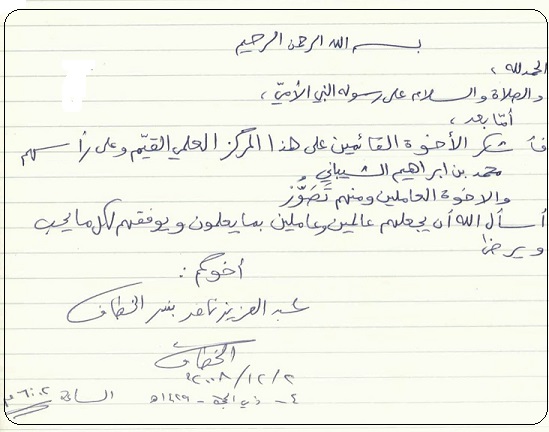 بسم الله الرحمن الرحيم
الحمد لله ،
والصلاة والسلام على رسوله النبي الأميّ ،
أمّا بعد ،
فأشكر الأخوة القائمين على هذا المركز العلمي القيّم وعلى رأسهم
محمد بن ابراهيم الشيباني
والاخوة العاملين ومنهم
أسأل الله أن يجعلهم عالمين وعاملين بما يعلمون ويوفقهم لكل ما يحب
ويرضا
أخوكم :
عبد العزيز ناصر بشر الخطاف
الخطاف
٢٠٠٨/١٢/٢
٤ - ذي الحجة - ١٤٢٩هـ
الساعة ٦:٠٢ م